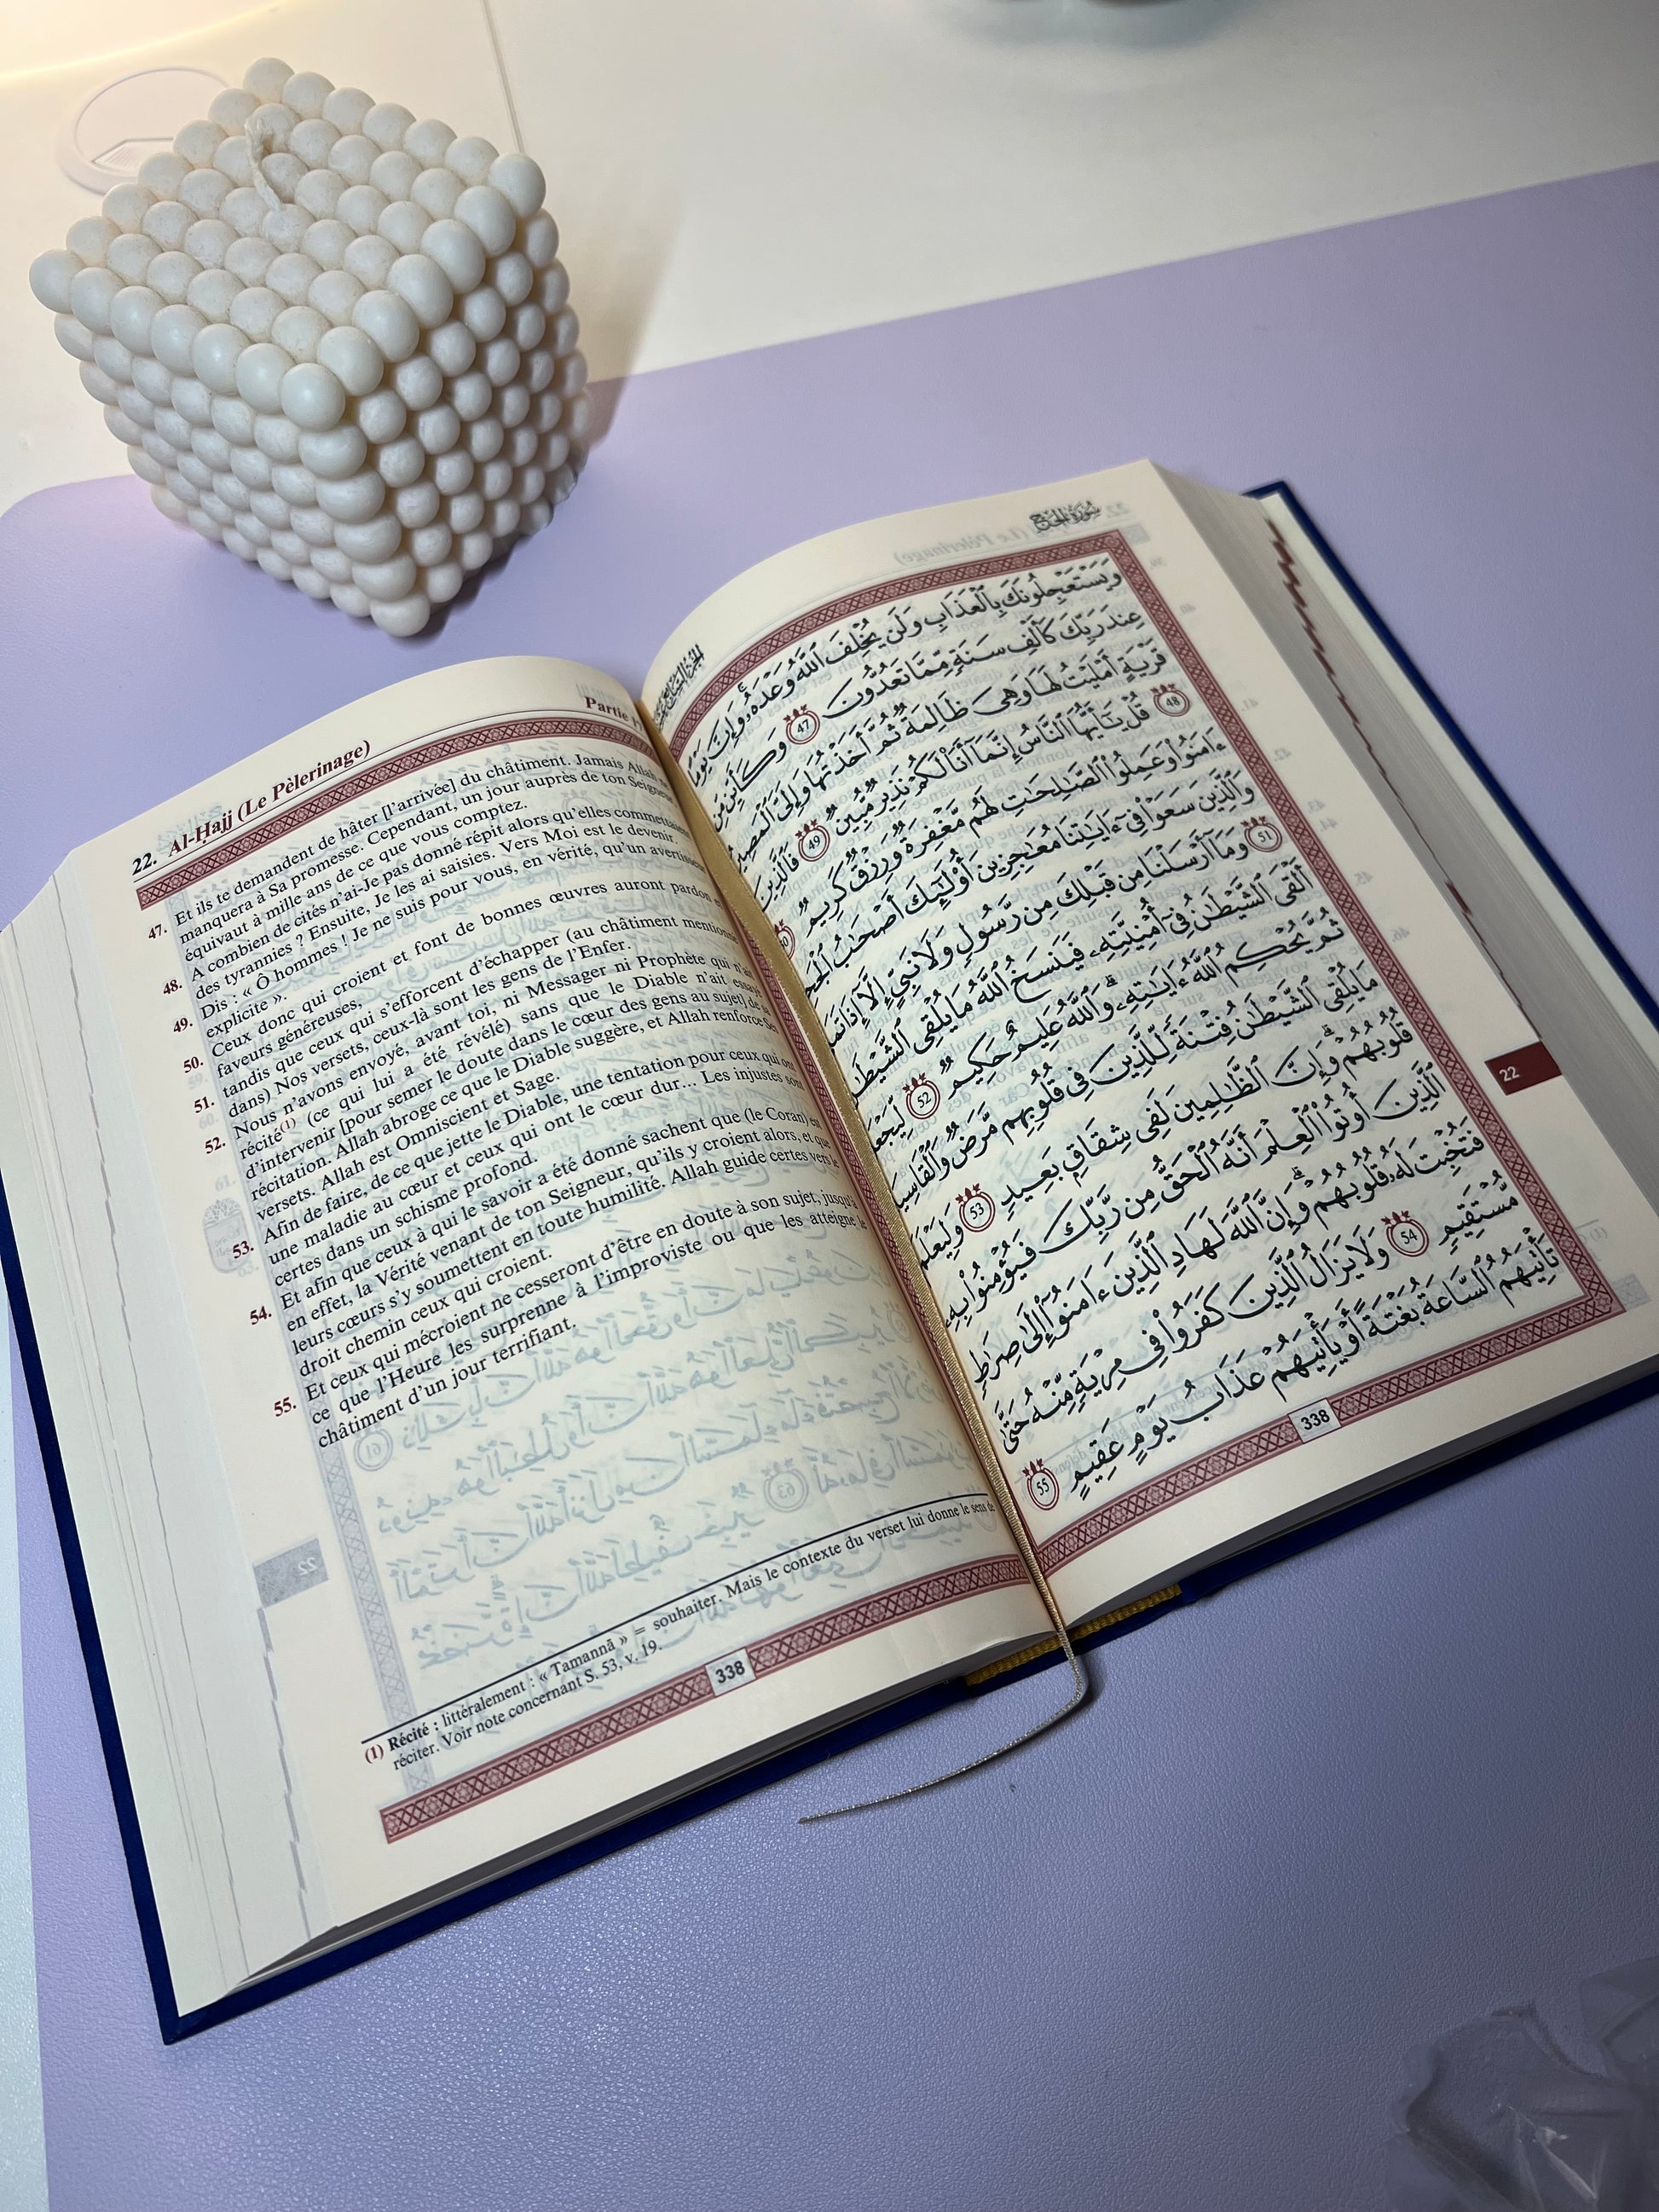 22. Al-Ḥajj (Le Pèlerinage)
Partie
47. Et ils te demandent de hâter [l'arrivée] du châtiment. Jamais Allah
manquera à Sa promesse. Cependant, un jour auprès de ton Seigneur
équivaut à mille ans de ce que vous comptez.
48. A combien de cités n'ai-Je pas donné répit alors qu'elles commettaient
des tyrannies ? Ensuite, Je les ai saisies. Vers Moi est le devenir.
49. Dis : « Ô hommes ! Je ne suis pour vous, en vérité, qu'un
explicite ».
50. Ceux donc qui croient et font de bonnes œuvres auront pardon et
faveurs généreuses,
51. tandis que ceux qui s'efforcent d'échapper (au châtiment mentionné
dans) Nos versets, ceux-là sont les gens de l'Enfer.
52. Nous n'avons envoyé, avant toi, ni Messager ni Prophète qui n'ait
récité(1) (ce qui lui a été révélé) sans que le Diable n'ait essayé
d'intervenir [pour semer le doute dans le cœur des gens au sujet] de sa
récitation. Allah abroge ce que le Diable suggère, et Allah renforce Ses
versets. Allah est Omniscient et Sage.
53. Afin de faire, de ce que jette le Diable, une tentation pour ceux qui ont
une maladie au cœur et ceux qui ont le cœur dur... Les injustes sont
certes dans un schisme profond.
54. Et afin que ceux à qui le savoir a été donné sachent que (le Coran) est
en effet, la Vérité venant de ton Seigneur, qu'ils y croient alors, et que
leurs cœurs s'y soumettent en toute humilité. Allah guide certes vers le
droit chemin ceux qui croient.
55. Et ceux qui mécroient ne cesseront d'être en doute à son sujet, jusqu'à
ce que l'Heure les surprenne à l'improviste ou que les atteigne le
châtiment d'un jour terrifiant.
(1) Récité : littéralement : « Tamannā » = souhaiter. Mais le contexte du verset lui donne le sens de
réciter. Voir note concernant S. 53, v. 19.
338
سُورَةُ الحَجِّ
وَيَسْتَعْجِلُونَكَ بِٱلْعَذَابِ وَلَن يُخْلِفَ ٱللَّهُ وَعْدَهُۥ وَإِنَّ يَوْمًا
عِندَ رَبِّكَ كَأَلْفِ سَنَةٍ مِّمَّا تَعُدُّونَ 47 وَكَأَيِّن مِّن
قَرْيَةٍ أَمْلَيْتُ لَهَا وَهِىَ ظَالِمَةٌ ثُمَّ أَخَذْتُهَا وَإِلَىَّ ٱلْمَصِيرُ
48 قُلْ يَٰٓأَيُّهَا ٱلنَّاسُ إِنَّمَآ أَنَا۠ لَكُمْ نَذِيرٌ مُّبِينٌ 49 فَٱلَّذِينَ
ءَامَنُوا۟ وَعَمِلُوا۟ ٱلصَّٰلِحَٰتِ لَهُم مَّغْفِرَةٌ وَرِزْقٌ كَرِيمٌ 50
وَٱلَّذِينَ سَعَوْا۟ فِىٓ ءَايَٰتِنَا مُعَٰجِزِينَ أُو۟لَٰٓئِكَ أَصْحَٰبُ
51 وَمَآ أَرْسَلْنَا مِن قَبْلِكَ مِن رَّسُولٍ وَلَا نَبِىٍّ إِلَّآ إِذَا
أَلْقَى ٱلشَّيْطَٰنُ فِىٓ أُمْنِيَّتِهِۦ فَيَنسَخُ ٱللَّهُ مَا يُلْقِى ٱلشَّيْطَٰنُ
ثُمَّ يُحْكِمُ ٱللَّهُ ءَايَٰتِهِۦ وَٱللَّهُ عَلِيمٌ حَكِيمٌ 52 لِّيَجْعَلَ
مَا يُلْقِى ٱلشَّيْطَٰنُ فِتْنَةً لِّلَّذِينَ فِى قُلُوبِهِم مَّرَضٌ وَٱلْقَاسِيَةِ
قُلُوبُهُمْ وَإِنَّ ٱلظَّٰلِمِينَ لَفِى شِقَاقٍۭ بَعِيدٍ 53 وَلِيَعْلَمَ
ٱلَّذِينَ أُوتُوا۟ ٱلْعِلْمَ أَنَّهُ ٱلْحَقُّ مِن رَّبِّكَ فَيُؤْمِنُوا۟ بِهِۦ
فَتُخْبِتَ لَهُۥ قُلُوبُهُمْ وَإِنَّ ٱللَّهَ لَهَادِ ٱلَّذِينَ ءَامَنُوٓا۟ إِلَىٰ صِرَٰطٍ
مُّسْتَقِيمٍ 54 وَلَا يَزَالُ ٱلَّذِينَ كَفَرُوا۟ فِى مِرْيَةٍ مِّنْهُ حَتَّىٰ
تَأْتِيَهُمُ ٱلسَّاعَةُ بَغْتَةً أَوْ يَأْتِيَهُمْ عَذَابُ يَوْمٍ عَقِيمٍ 55
22
338